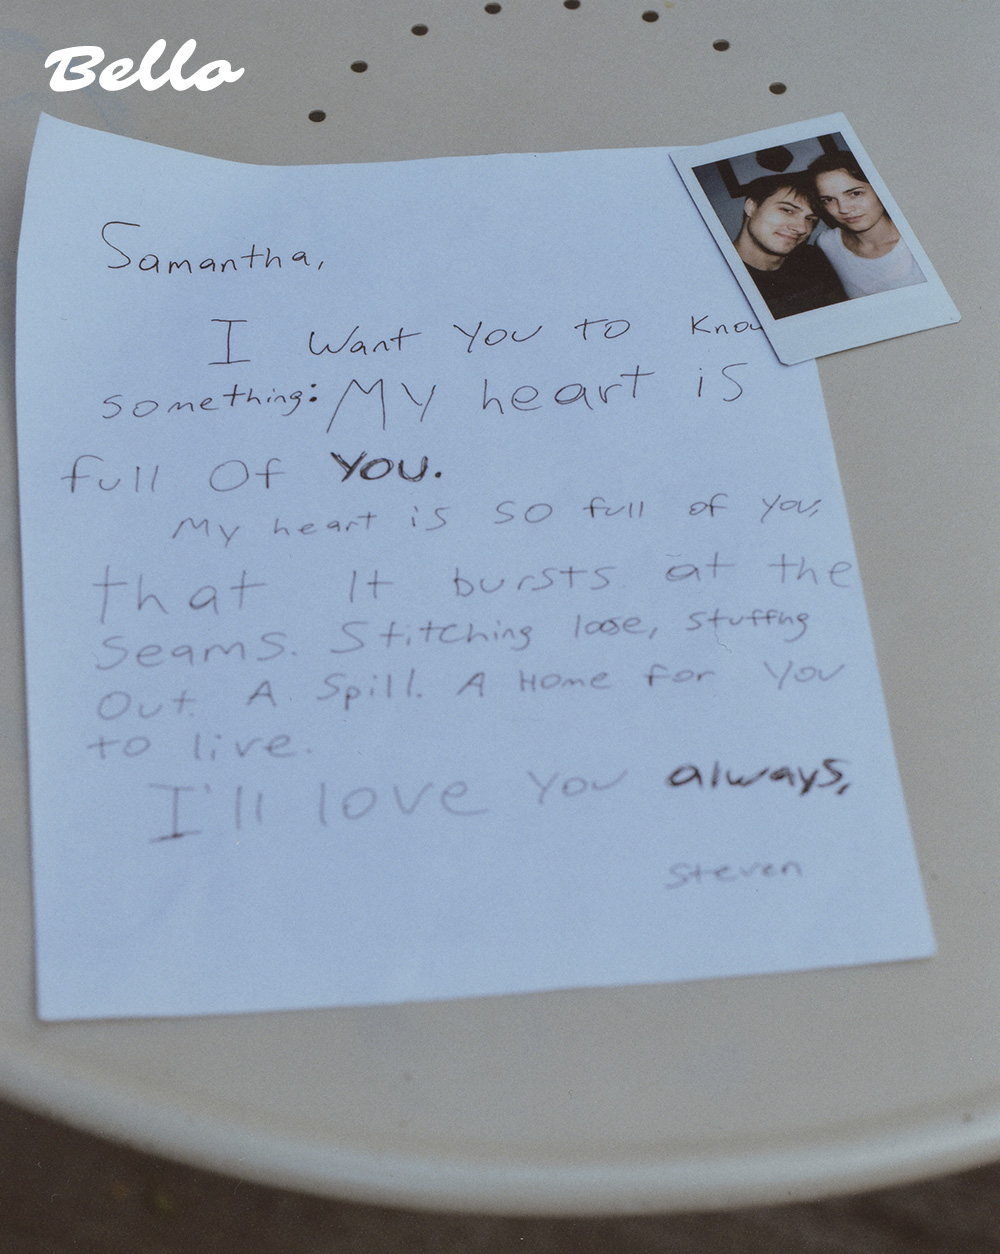 Bello
Samantha,
I Want You To Know
something: My heart is
full Of You.
My heart is so full of you,
that It bursts at the
seams. Stitching loose, stuffing
Out. A Spill. A Home for You
to live.
I'll love You always,
Steven